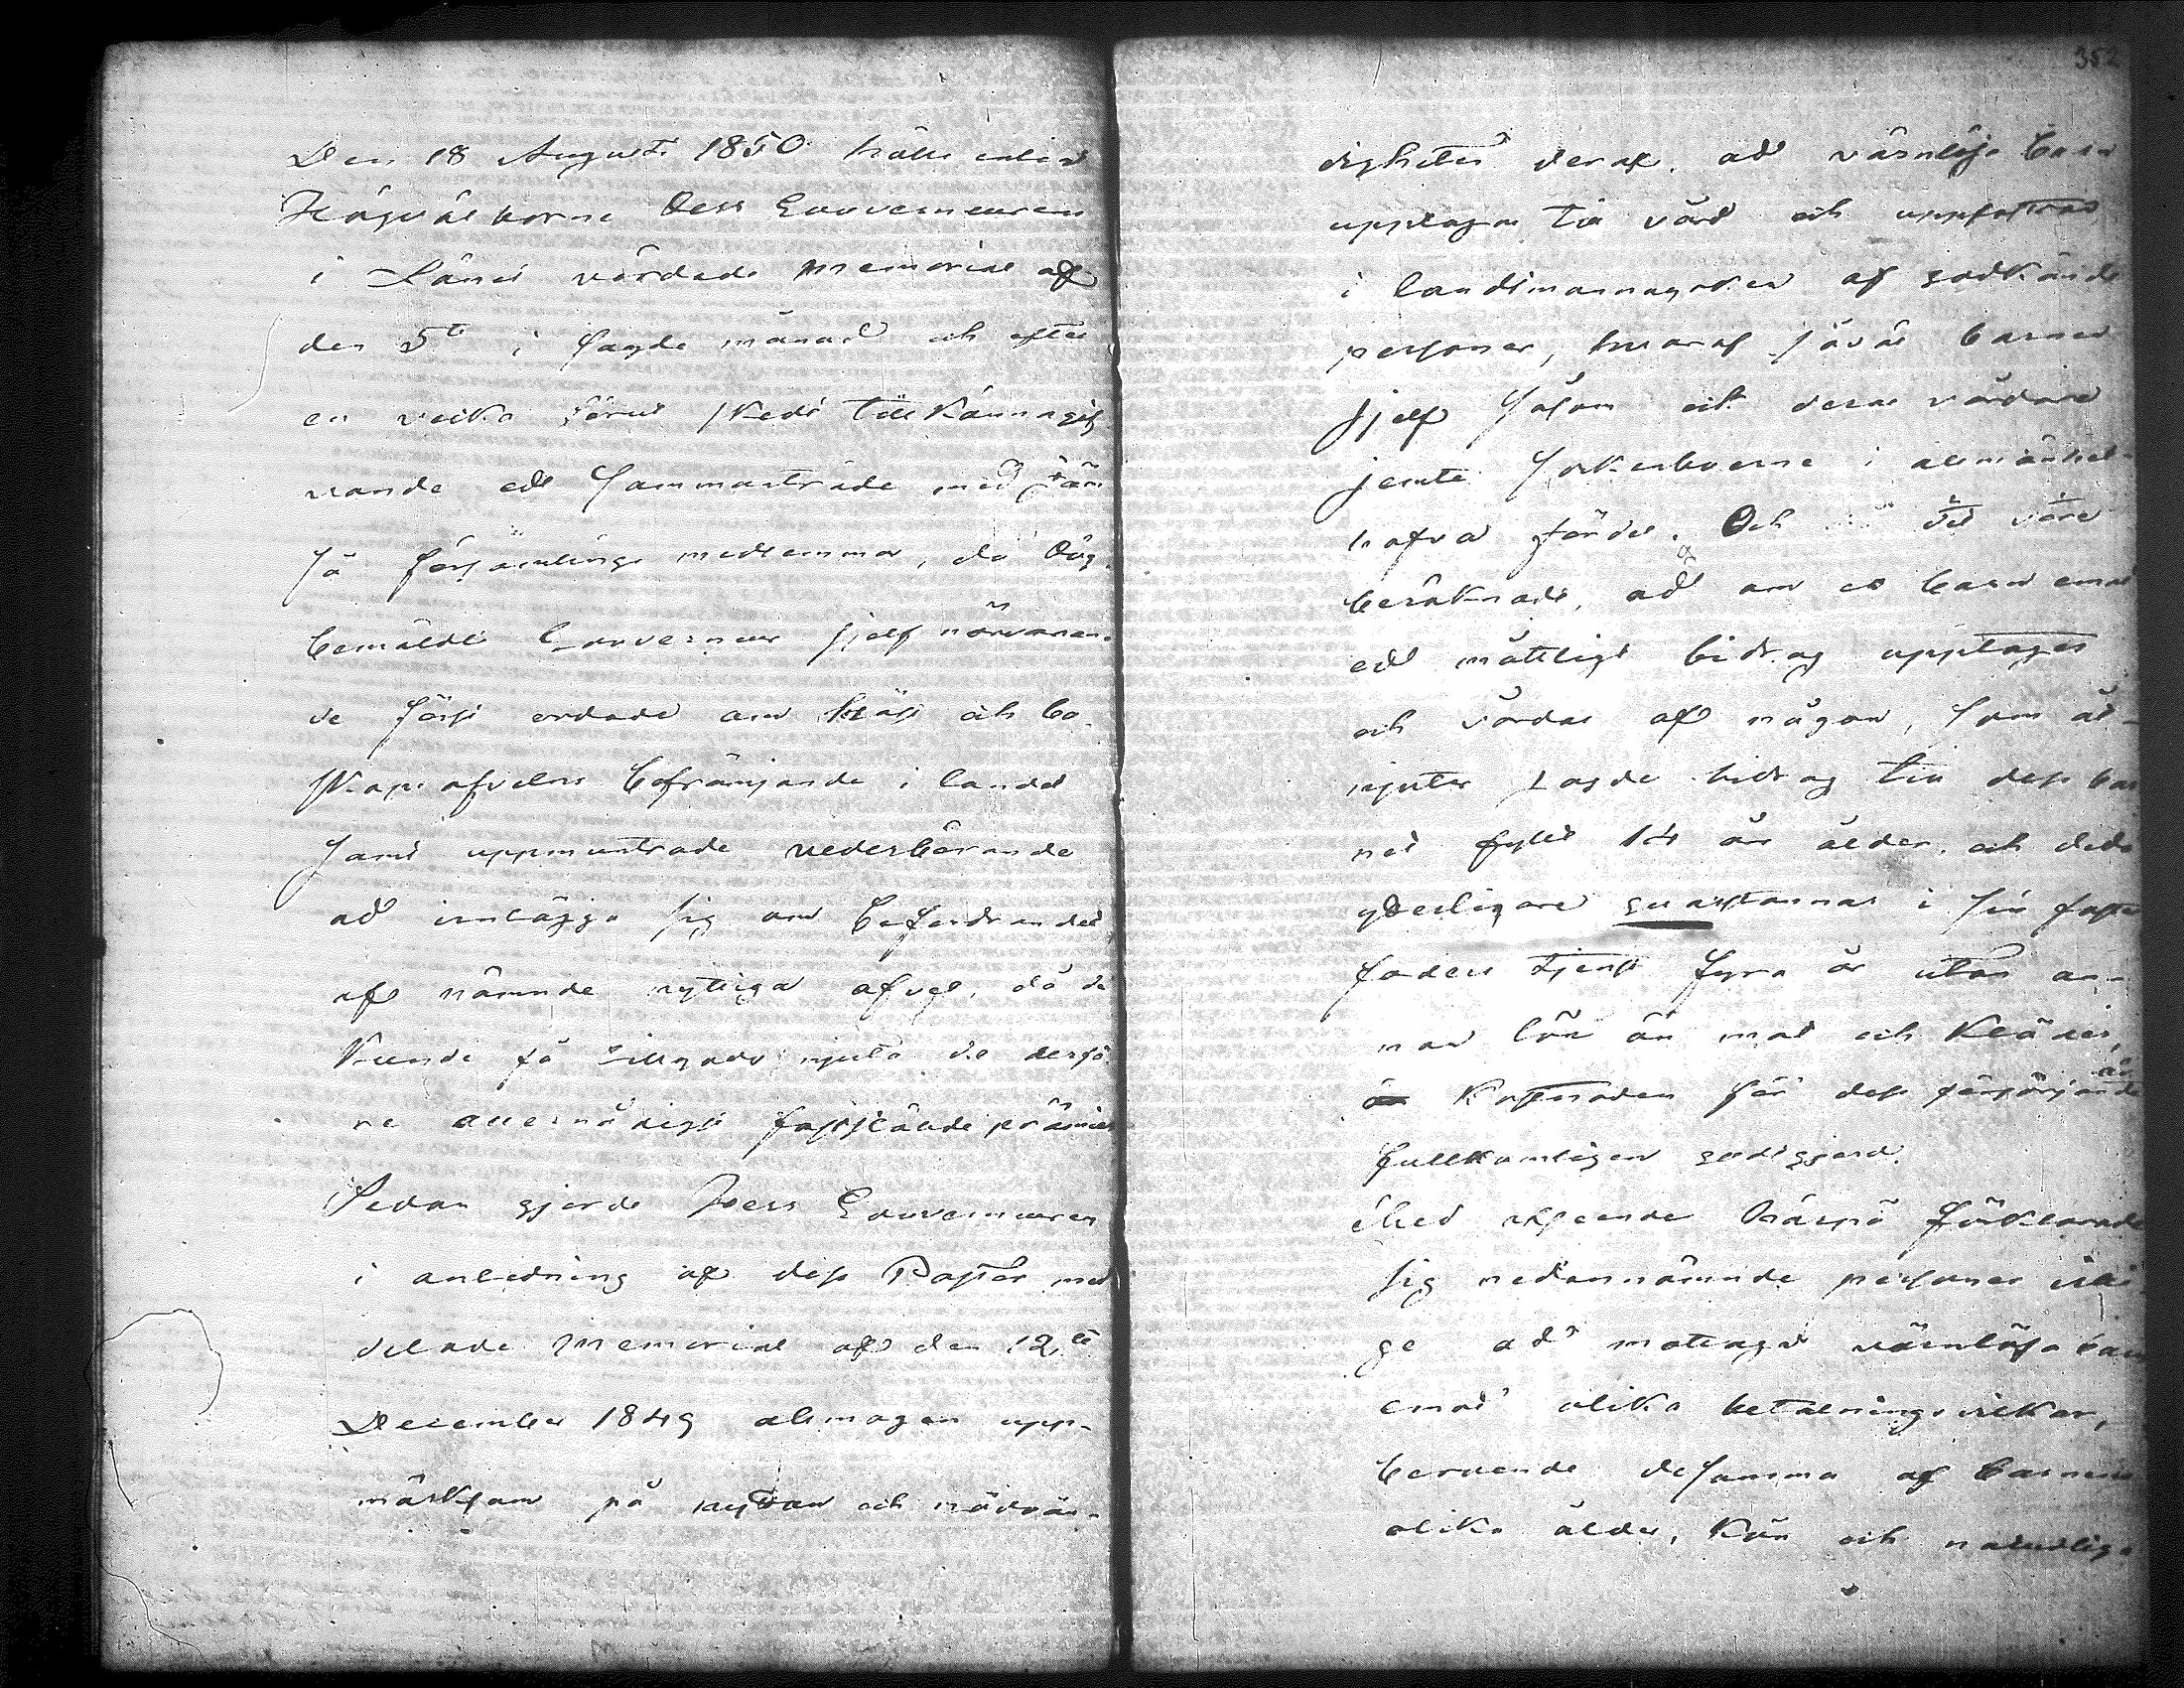 352
Den 18 Augusti 1850 hölls enligt
Högvälborne Herr Gouverneurens
i Länet vördade Memorial af
den 5te i sagde månad och efter
en vecka förut skedt tillkännagif
vande ett sammanträde med
så församlings medlemmar, då Hög
bemälde Gouverneur sjelf närvaran
de först ordade om häst och bo
skaps afvelns befrämjande i landet
samt uppmuntrade vederbörande
att inlägga sig om befordrandet
af nämnde nyttiga afvel, då de
kunde få tillgodo njuta de derfö
re allernådigst fastställde prämier
Sedan gjorde Herr Gouverneuren
i anledning af dess Pastor med
delade Memorial af den 12te
December 1849 allmogen upp-
märksam på nyttan och nödvän-
digheten deraf, att värnlösa barn
upptagas till vård och uppfostras
i landtmannayrken af godkände
personer, hvaraf såväl barnen
sjelf såsom ock deras vårdare
jemte Sockenboerne i allmänhet
hafva fördel. Och det vore
beräknadt, att om ett barn emot
ett måttligt bidrag upptages
och vårdas af någon, som åt-
njuter sagde bidrag till dess bar
net fyllt 14 år ålder, och dito
ytterligare quarstannar i sin foster
faders tjenst fyra år utan an-
nan lön än mat och kläder,
kostnaden för dess försörjande är
fullkomligen godtgjord.
Med afseende härpå förklarade
sig nedannämnde personer villi
ge att mottaga värnlösa barn
emot olika betalningsvilkor,
beroende desamma af barnens
olika ålder, kön och naturliga